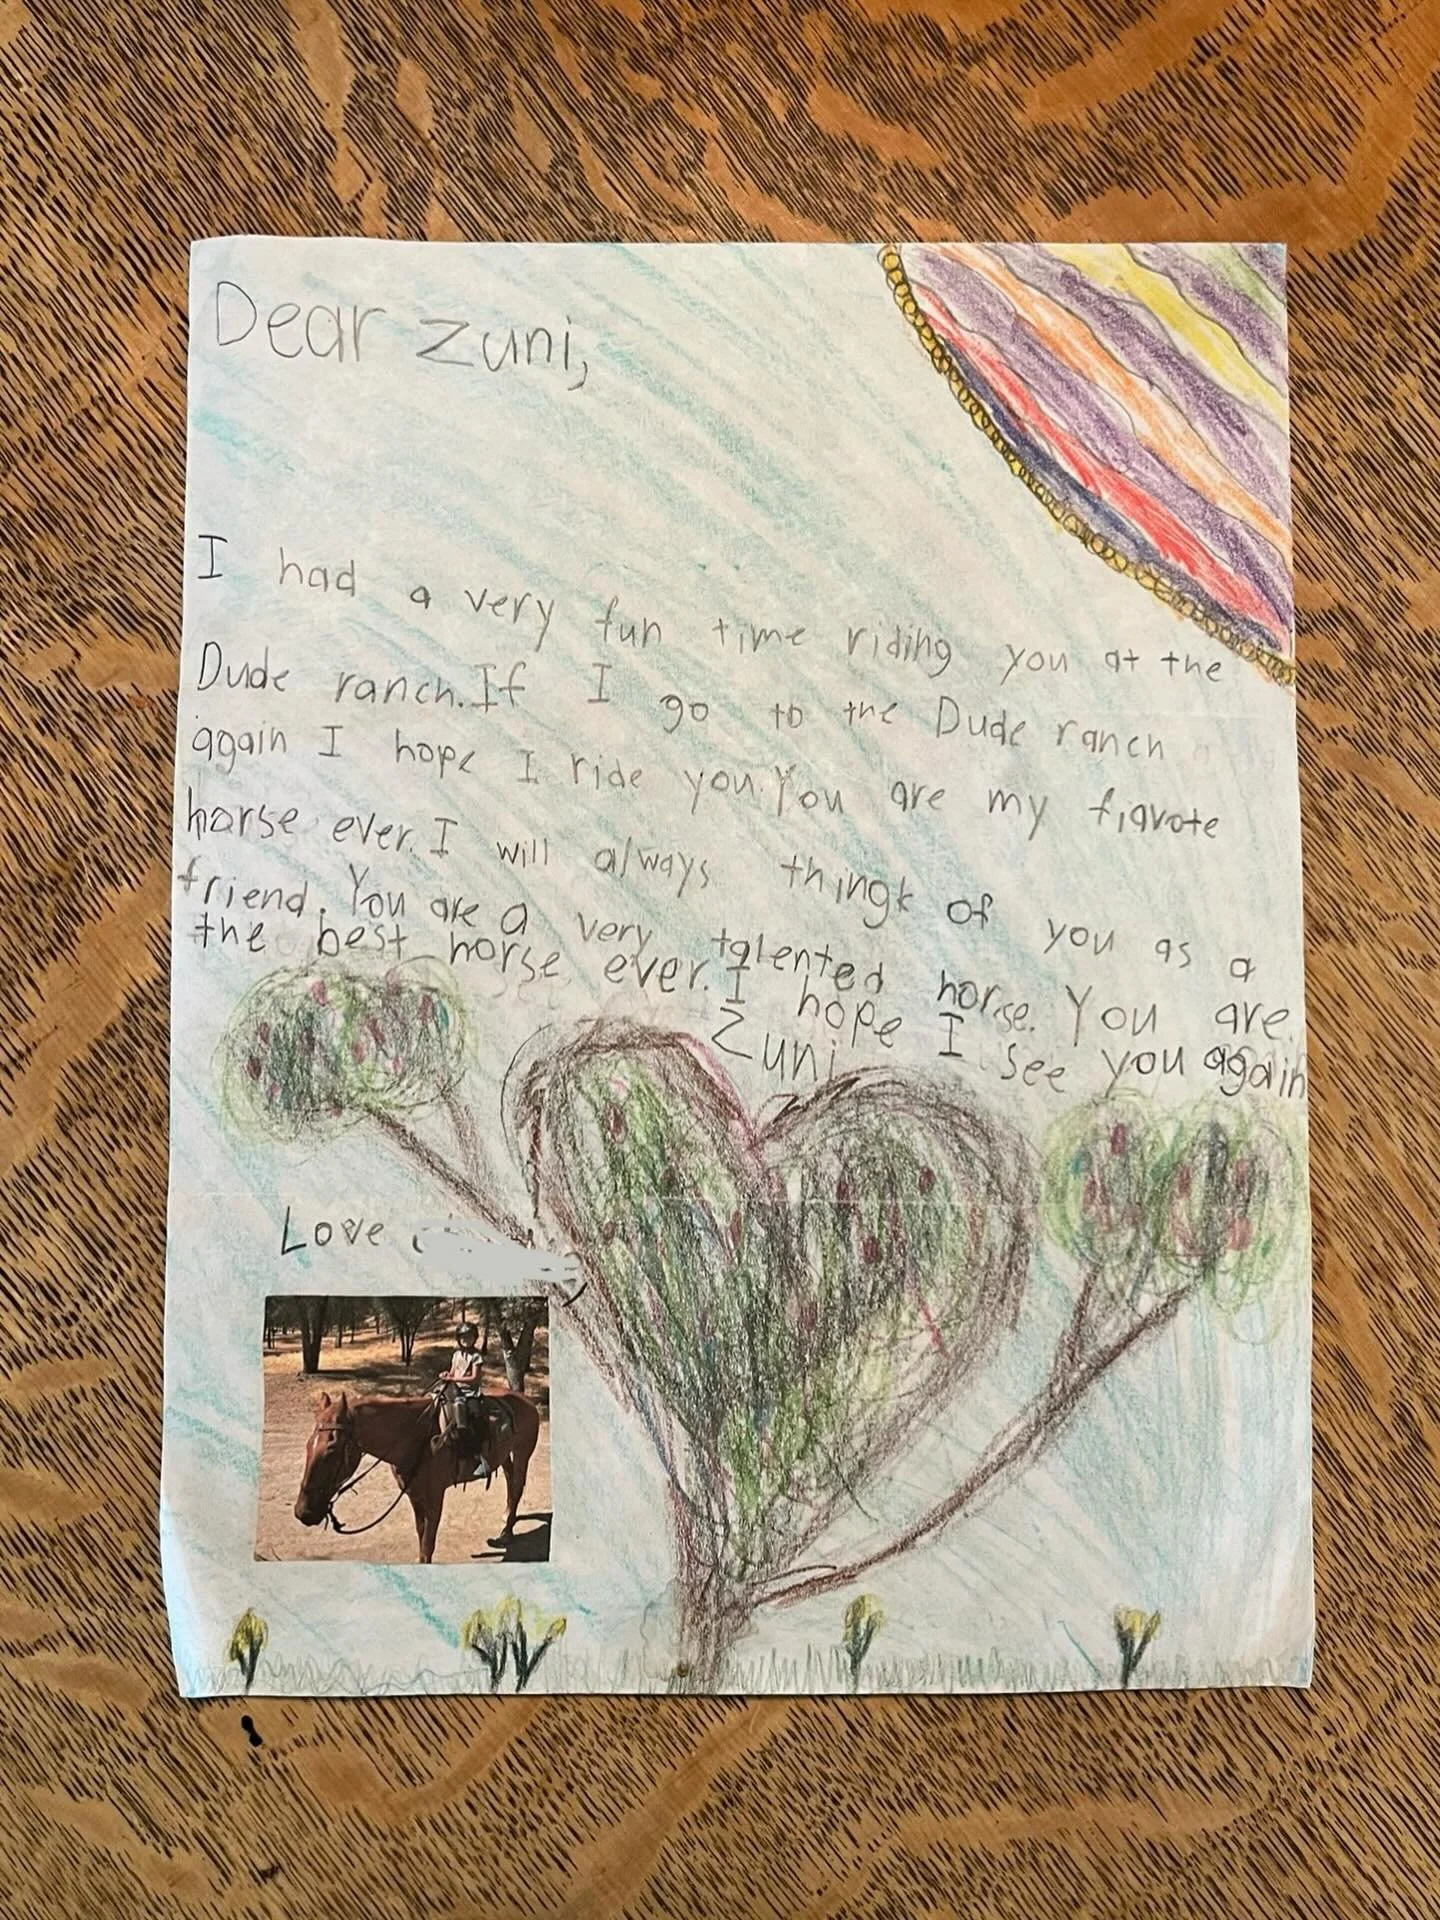 Dear Zuni,
I had a very fun time riding you at the
Dude ranch. If I go to the Dude ranch
again I hope I ride you. You are my fiavote
horse ever. I will always thingk of you as a
friend. You are a very talented horse. You are
the best horse ever. I hope I see you again
Zuni
Love